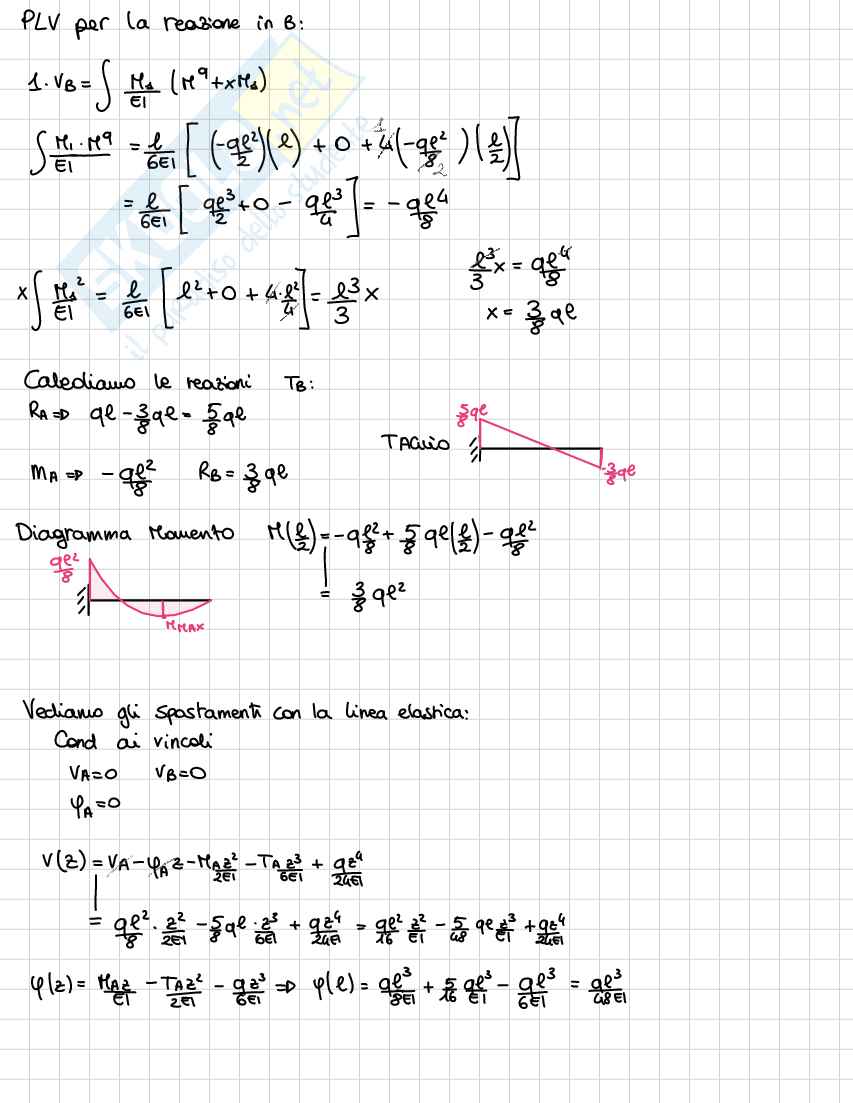 PLV per la reazione in B:
1·V_B = ∫ M₁/EI (M^q + xM₁)
∫ M₁·M^q/EI = l/6EI [ (-ql²/2)(l) + 0 + 4(-ql²/8)(l/2) ]
= l/6EI [ ql³/2 + 0 - ql³/4 ] = - ql⁴/8
x∫ M₁²/EI = l/6EI [ l² + 0 + 4·l²/4 ] = l³/3 x
l³/3 x = ql⁴/8
x = 3/8 ql
Calcoliamo le reazioni T_B:
R_A ⇒ ql - 3/8 ql = 5/8 ql
M_A ⇒ - ql²/8 R_B = 3/8 ql
TAGLIO
5/8 ql
-3/8 ql
Diagramma Momento M(l/2) = - ql²/8 + 5/8 ql(l/2) - ql²/8
= 3/8 ql²
ql²/8
M_MAX
Vediamo gli spostamenti con la linea elastica:
Cond ai vincoli
V_A=0 V_B=0
φ_A=0
V(z) = V_A - φ_A z - M_A z²/2EI - T_A z³/6EI + qz⁴/24EI
= ql²/8 · z²/2EI - 5/8 ql · z³/6EI + qz⁴/24EI = ql²/16 z²/EI - 5/48 ql z³/EI + qz⁴/24EI
φ(z) = M_A z/EI - T_A z²/2EI - qz³/6EI ⇒ φ(l) = ql³/8EI + 5/16 ql³/EI - ql³/6EI = ql³/48EI